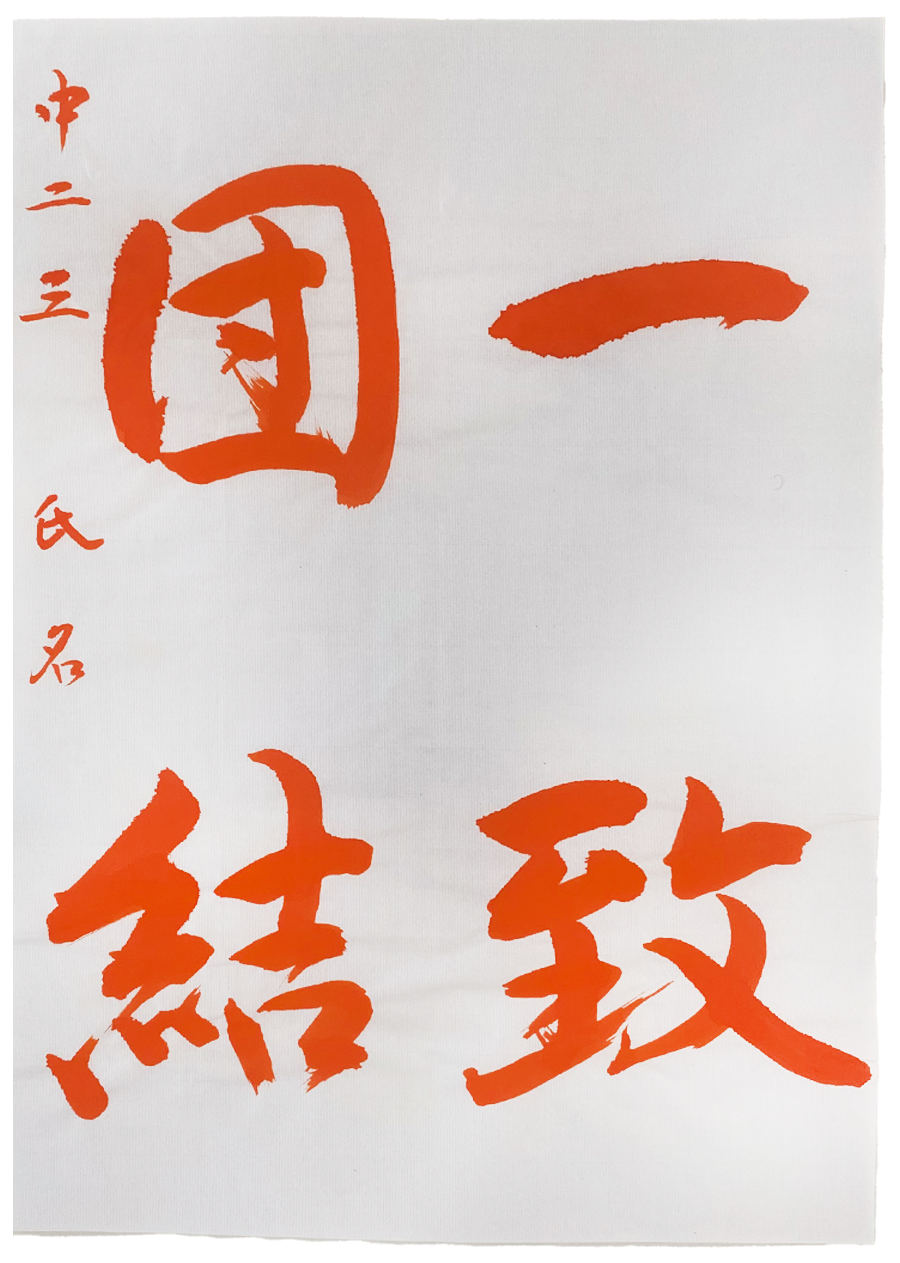 一致
団結
中二三 氏名